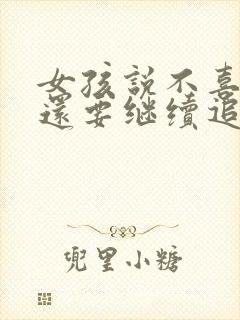 女孩説不喜
還要继续追
兜里小糖